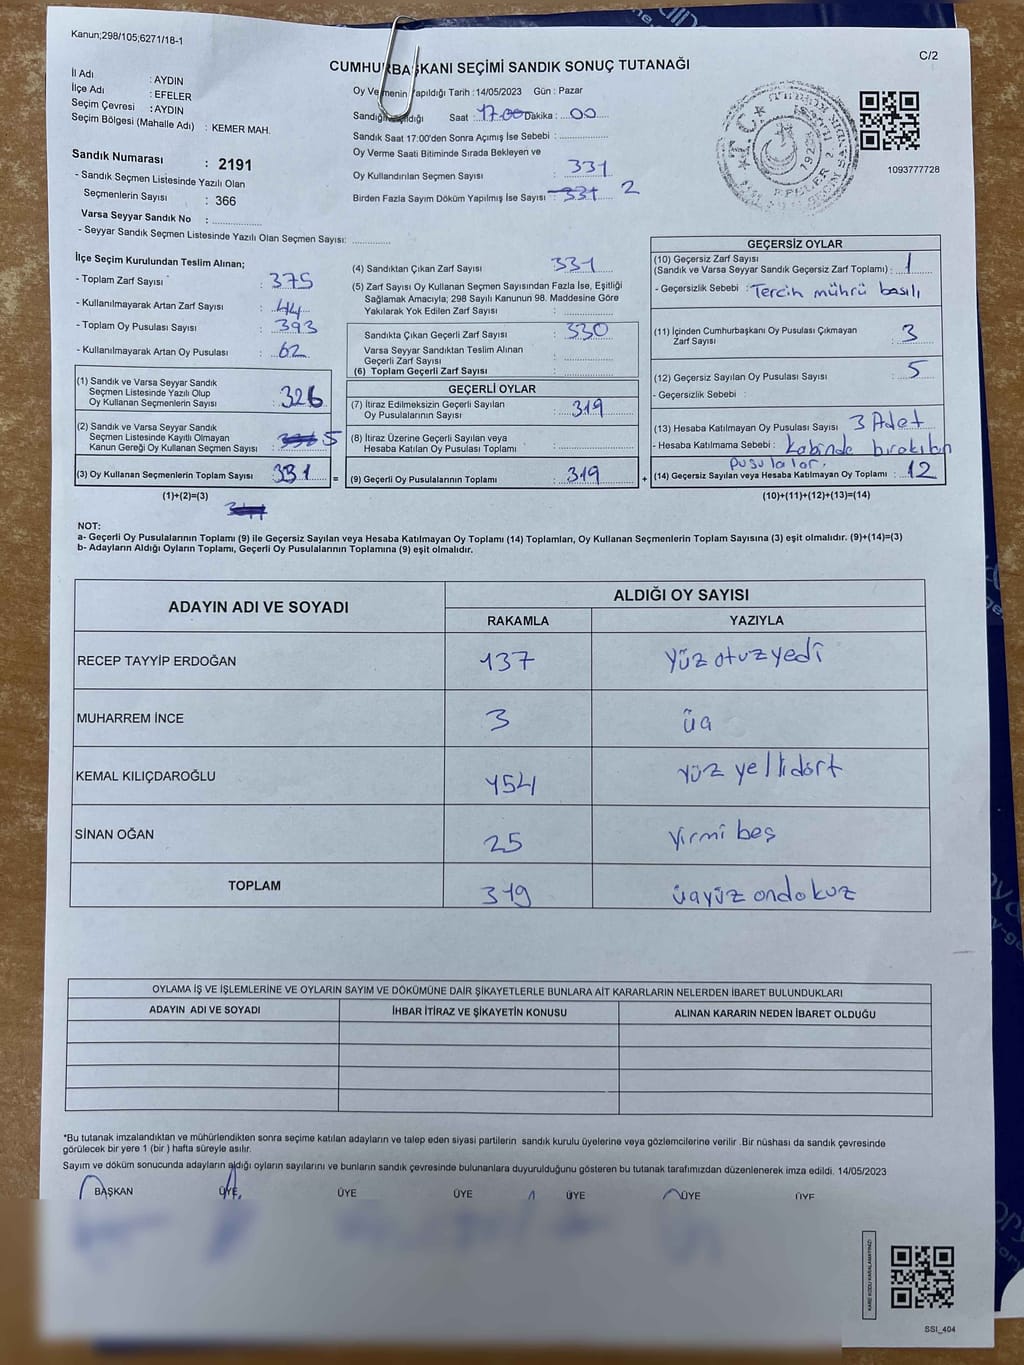 Kanun;298/105;6271/18-1
C/2
CUMHURBAŞKANI SEÇİMİ SANDIK SONUÇ TUTANAĞI
İl Adı : AYDIN
İlçe Adı : EFELER
Seçim Çevresi : AYDIN
Seçim Bölgesi (Mahalle Adı) : KEMER MAH.
Sandık Numarası : 2191
- Sandık Seçmen Listesinde Yazılı Olan
Seçmenlerin Sayısı : 366
Varsa Seyyar Sandık No :
- Seyyar Sandık Seçmen Listesinde Yazılı Olan Seçmen Sayısı:
Oy Vermenin Yapıldığı Tarih : 14/05/2023 Gün : Pazar
Sandığın Saat : 17.00 Dakika : 00
Sandık Saat 17:00'den Sonra Açımış İse Sebebi :
Oy Verme Saati Bitiminde Sırada Bekleyen ve
Oy Kullandırılan Seçmen Sayısı : 331
Birden Fazla Sayım Döküm Yapılmış İse Sayısı : 331 2
1093777728
İlçe Seçim Kurulundan Teslim Alınan;
- Toplam Zarf Sayısı : 375
- Kullanılmayarak Artan Zarf Sayısı : 44
- Toplam Oy Pusulası Sayısı : 393
- Kullanılmayarak Artan Oy Pusulası : 62
(1) Sandık ve Varsa Seyyar Sandık
Seçmen Listesinde Yazılı Olup
Oy Kullanan Seçmenlerin Sayısı : 326
(2) Sandık ve Varsa Seyyar Sandık
Seçmen Listesinde Kayıtlı Olmayan
Kanun Gereği Oy Kullanan Seçmen Sayısı : 5
(3) Oy Kullanan Seçmenlerin Toplam Sayısı : 331 =
(1)+(2)=(3)
(4) Sandıktan Çıkan Zarf Sayısı : 331
(5) Zarf Sayısı Oy Kullanan Seçmen Sayısından Fazla İse, Eşitliği
Sağlamak Amacıyla; 298 Sayılı Kanunun 98. Maddesine Göre
Yakılarak Yok Edilen Zarf Sayısı :
Sandıkta Çıkan Geçerli Zarf Sayısı : 330
Varsa Seyyar Sandıktan Teslim Alınan
Geçerli Zarf Sayısı :
(6) Toplam Geçerli Zarf Sayısı :
GEÇERLİ OYLAR
(7) İtiraz Edilmeksizin Geçerli Sayılan
Oy Pusulalarının Sayısı : 319
(8) İtiraz Üzerine Geçerli Sayılan veya
Hesaba Katılan Oy Pusulaları Toplamı :
(9) Geçerli Oy Pusulalarının Toplamı : 319 +
GEÇERSİZ OYLAR
(10) Geçersiz Zarf Sayısı
(Sandık ve Varsa Seyyar Sandık Geçersiz Zarf Toplamı) : 1
- Geçersizlik Sebebi : Tercih mührü basılı
(11) İçinden Cumhurbaşkanı Oy Pusulası Çıkmayan
Zarf Sayısı : 3
(12) Geçersiz Sayılan Oy Pusulası Sayısı : 5
- Geçersizlik Sebebi :
(13) Hesaba Katılmayan Oy Pusulası Sayısı : 3 Adet
- Hesaba Katılmama Sebebi : Kabinde bırakılan
pusulalar.
(14) Geçersiz Sayılan veya Hesaba Katılmayan Oy Toplamı : 12
(10)+(11)+(12)+(13)=(14)
NOT:
a- Geçerli Oy Pusulalarının Toplamı (9) ile Geçersiz Sayılan veya Hesaba Katılmayan Oy Toplamı (14) Toplamları, Oy Kullanan Seçmenlerin Toplam Sayısına (3) eşit olmalıdır. (9)+(14)=(3)
b- Adayların Aldığı Oyların Toplamı, Geçerli Oy Pusulalarının Toplamına (9) eşit olmalıdır.
ADAYIN ADI VE SOYADI
ALDIĞI OY SAYISI
RAKAMLA YAZIYLA
RECEP TAYYİP ERDOĞAN 137 yüz otuz yedi
MUHARREM İNCE 3 üç
KEMAL KILIÇDAROĞLU 154 yüz yellidört
SİNAN OĞAN 25 yirmi beş
TOPLAM 319 üçyüz ondokuz
OYLAMA İŞ VE İŞLEMLERİNE VE OYLARIN SAYIM VE DÖKÜMÜNE DAİR ŞİKAYETLERLE BUNLARA AİT KARARLARIN NELERDEN İBARET BULUNDUKLARI
ADAYIN ADI VE SOYADI İHBAR İTİRAZ VE ŞİKAYETİN KONUSU ALINAN KARARIN NEDEN İBARET OLDUĞU
*Bu tutanak imzalandıktan ve mühürlendikten sonra seçime katılan adayların ve talep eden siyasi partilerin sandık kurulu üyelerine veya gözlemcilerine verilir .Bir nüshası da sandık çevresinde
görülecek bir yere 1 (bir ) hafta süreyle asılır.
Sayım ve döküm sonucunda adayların aldığı oyların sayılarını ve bunların sandık çevresinde bulunanlara duyurulduğunu gösteren bu tutanak tarafımızdan düzenlenerek imza edildi. 14/05/2023
BAŞKAN ÜYE ÜYE ÜYE ÜYE ÜYE ÜYE
KARE KODU KARALAMAYINIZ!
SSİ_404